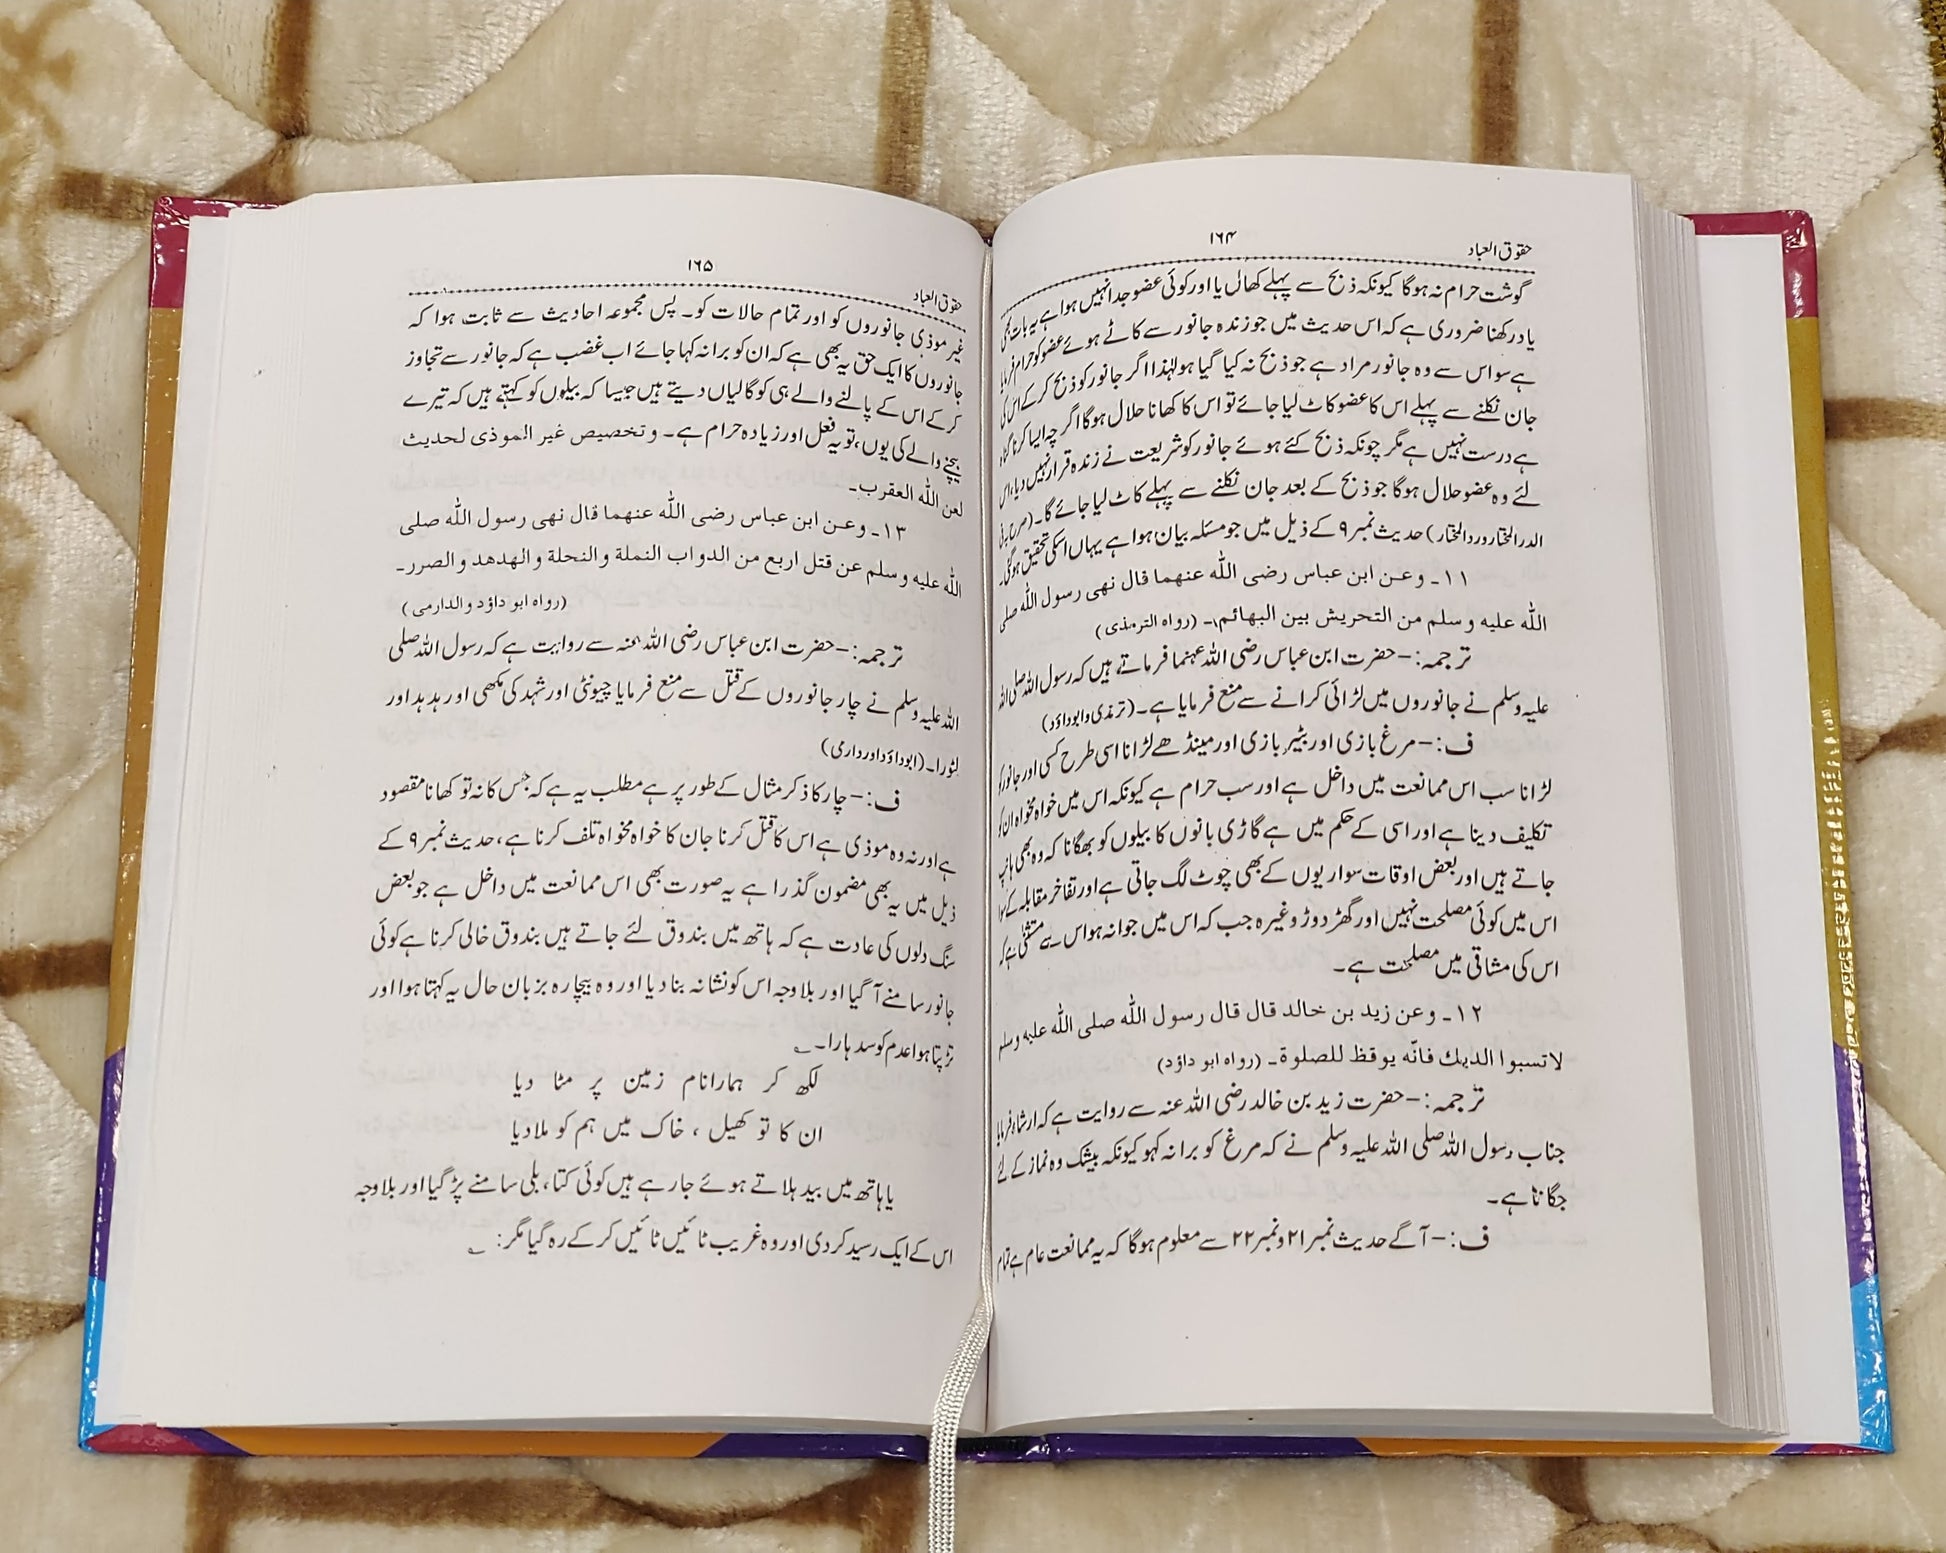 حقوق العباد
۱۶۴
گوشت حرام نہ ہوگا کیونکہ ذبح سے پہلے کھال یا اور کوئی عضو جدا نہیں ہوا ہے یہ بات بھی
یاد رکھنا ضروری ہے کہ اس حدیث میں جو زندہ جانور سے کاٹے ہوئے عضو کو حرام فرمایا
ہے سو اس سے وہ جانور مراد ہے جو ذبح نہ کیا گیا ہو لہٰذا اگر جانور کو ذبح کر کے اس کی
جان نکلنے سے پہلے اس کا عضو کاٹ لیا جائے تو اس کا کھانا حلال ہوگا اگر چہ ایسا کرنا گناہ
ہے درست نہیں ہے مگر چونکہ ذبح کئے ہوئے جانور کو شریعت نے زندہ قرار نہیں دیا، اس
لئے وہ عضو حلال ہوگا جو ذبح کے بعد جان نکلنے سے پہلے کاٹ لیا جائے گا۔ (صرح بہ فی
الدر المختار ورد المختار) حدیث نمبر ۹ کے ذیل میں جو مسئلہ بیان ہوا ہے یہاں اسکی تحقیق ہوگئی۔
۱۱۔ وعن ابن عباس رضی اللّٰہ عنهما قال نهی رسول اللّٰہ صلی
اللّٰہ علیه وسلم من التحریش بین البهائم۔ (رواہ الترمذی)
ترجمہ:- حضرت ابن عباس رضی اللہ عنہما فرماتے ہیں کہ رسول اللہ صلی اللہ
علیہ وسلم نے جانوروں میں لڑائی کرانے سے منع فرمایا ہے۔ (ترمذی وابوداؤد)
ف:- مرغ بازی اور بٹیر بازی اور مینڈھے لڑانا اسی طرح کسی اور جانور کو
لڑانا سب اس ممانعت میں داخل ہے اور سب حرام ہے کیونکہ اس میں خواہ مخواہ ان کو
تکلیف دینا ہے اور اسی کے حکم میں ہے گاڑی بانوں کا بیلوں کو بھگانا کہ وہ بھی ہانپ
جاتے ہیں اور بعض اوقات سواریوں کے بھی چوٹ لگ جاتی ہے اور تفاخر مقابلہ کے سوا
اس میں کوئی مصلحت نہیں اور گھڑ دوڑ وغیرہ جب کہ اس میں جوا نہ ہو اس سے مستثنیٰ ہے کہ
اس کی مشاقی میں مصلحت ہے۔
۱۲۔ وعن زید بن خالد قال قال رسول اللّٰہ صلی اللّٰہ علیه وسلم
لا تسبوا الدیك فانّه یوقظ للصلوة۔ (رواہ ابو داؤد)
ترجمہ:- حضرت زید بن خالد رضی اللہ عنہ سے روایت ہے کہ ارشاد فرمایا
جناب رسول اللہ صلی اللہ علیہ وسلم نے کہ مرغ کو برا نہ کہو کیونکہ بیشک وہ نماز کے لئے
جگاتا ہے۔
ف:- آگے حدیث نمبر ۲۱ و نمبر ۲۲ سے معلوم ہوگا کہ یہ ممانعت عام ہے تمام
حقوق العباد
۱۶۵
غیر موذی جانوروں کو اور تمام حالات کو۔ پس مجموعہ احادیث سے ثابت ہوا کہ
جانوروں کا ایک حق یہ بھی ہے کہ ان کو برا نہ کہا جائے اب غضب ہے کہ جانور سے تجاوز
کر کے اس کے پالنے والے ہی کو گالیاں دیتے ہیں جیسا کہ بیلوں کو کہتے ہیں کہ تیرے
بیچنے والے کی یوں، تو یہ فعل اور زیادہ حرام ہے۔ وتخصیص غیر الموذی لحدیث
لعن اللّٰہ العقرب۔
۱۳۔ وعن ابن عباس رضی اللّٰہ عنهما قال نهی رسول اللّٰہ صلی
اللّٰہ علیه وسلم عن قتل اربع من الدواب النملة والنحلة والهدهد والصرر۔
(رواہ ابو داؤد والدارمی)
ترجمہ:- حضرت ابن عباس رضی اللہ عنہ سے روایت ہے کہ رسول اللہ صلی
اللہ علیہ وسلم نے چار جانوروں کے قتل سے منع فرمایا چیونٹی اور شہد کی مکھی اور ہدہد اور
لٹورا۔ (ابوداؤد اور دارمی)
ف:- چار کا ذکر مثال کے طور پر ہے مطلب یہ ہے کہ جس کا نہ تو کھانا مقصود
ہے اور نہ وہ موذی ہے اس کا قتل کرنا جان کا خواہ مخواہ تلف کرنا ہے، حدیث نمبر ۹ کے
ذیل میں یہ بھی مضمون گذرا ہے یہ صورت بھی اس ممانعت میں داخل ہے جو بعض
سنگ دلوں کی عادت ہے کہ ہاتھ میں بندوق لئے جاتے ہیں بندوق خالی کرنا ہے کوئی
جانور سامنے آ گیا اور بلا وجہ اس کو نشانہ بنا دیا اور وہ بیچارہ بزبان حال یہ کہتا ہوا اور
تڑپتا ہوا عدم کو سدہارا۔ ؎
لکھ کر ہمارا نام زمین پر مٹا دیا
ان کا تو کھیل ، خاک میں ہم کو ملا دیا
یا ہاتھ میں بید ہلاتے ہوئے جا رہے ہیں کوئی کتا، بلی سامنے پڑ گیا اور بلا وجہ
اس کے ایک رسید کر دی اور وہ غریب ٹائیں ٹائیں کر کے رہ گیا مگر: ؎